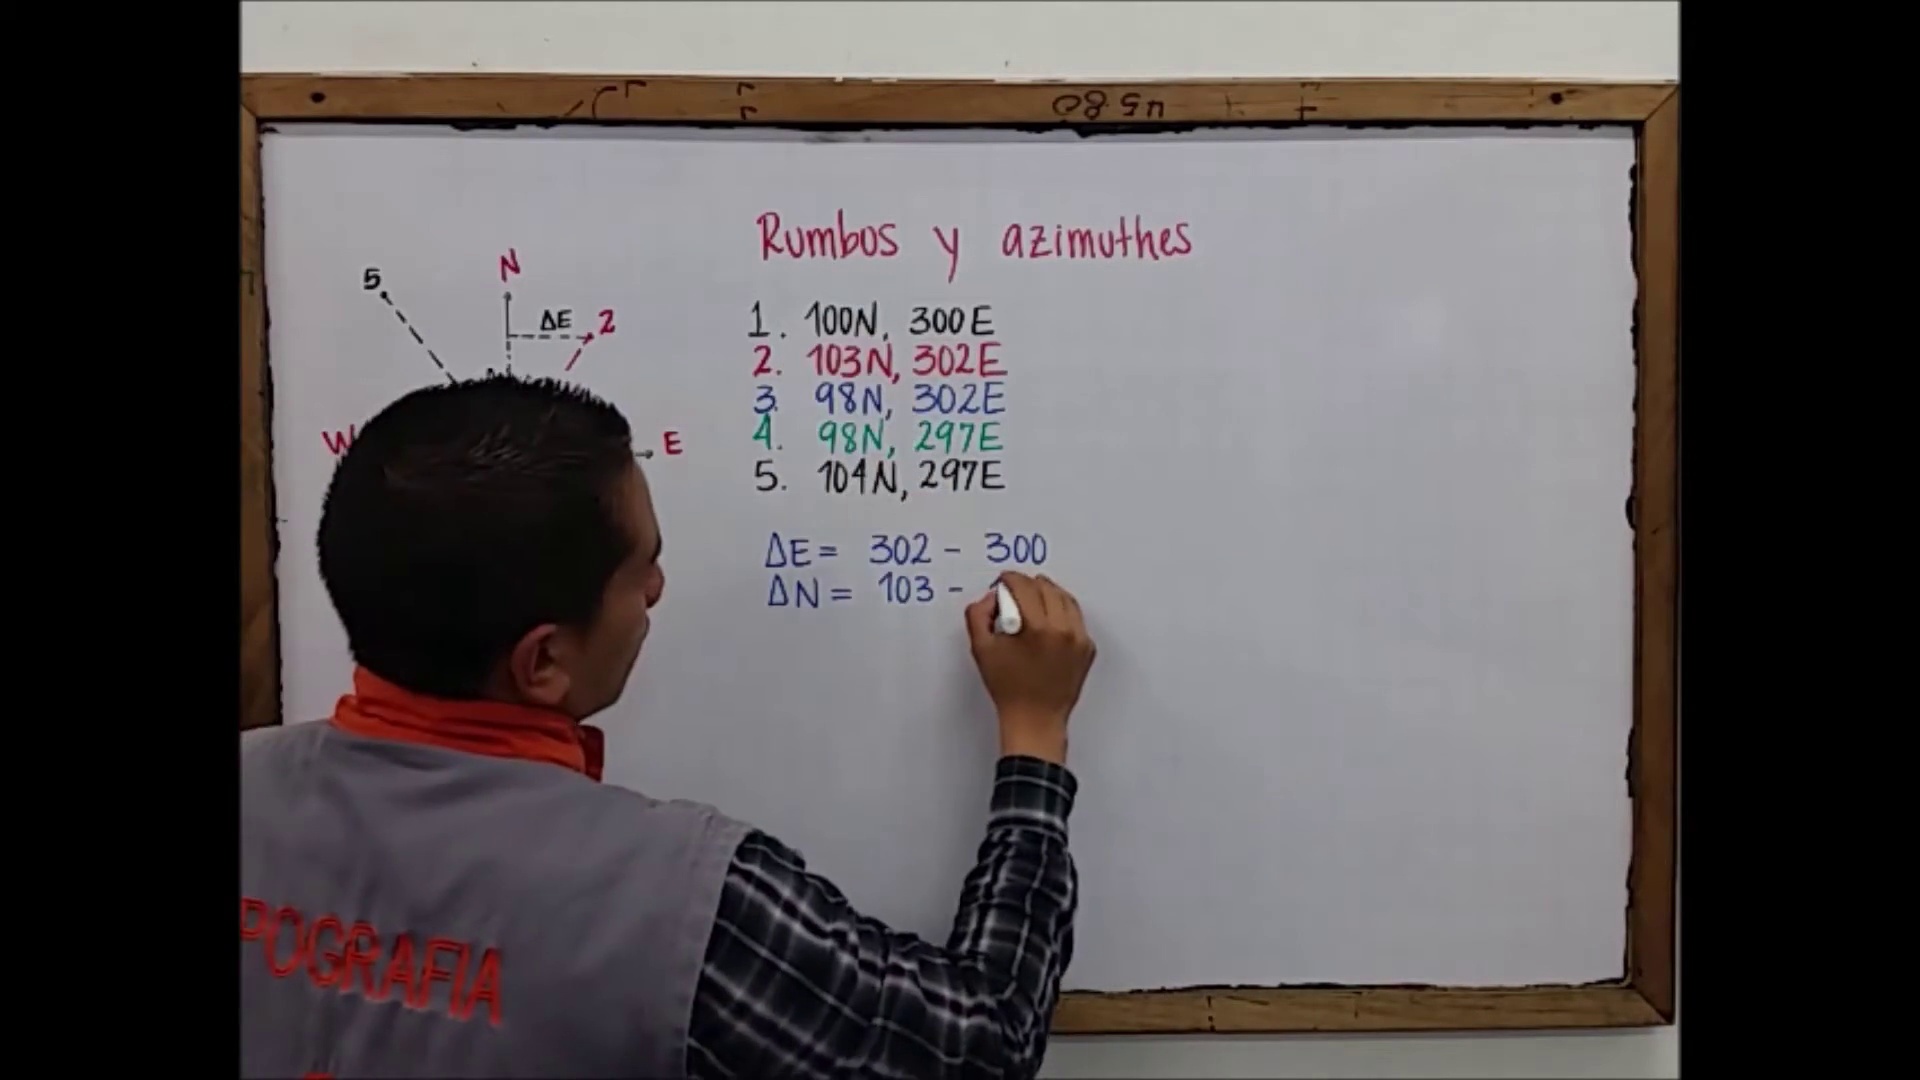 Rumbos y azimuthes
N
5
ΔE 2
W
E
1. 100N, 300E
2. 103N, 302E
3. 98N, 302E
4. 98N, 297E
5. 104N, 297E
ΔE = 302 - 300
ΔN = 103 -
POGRAFIA